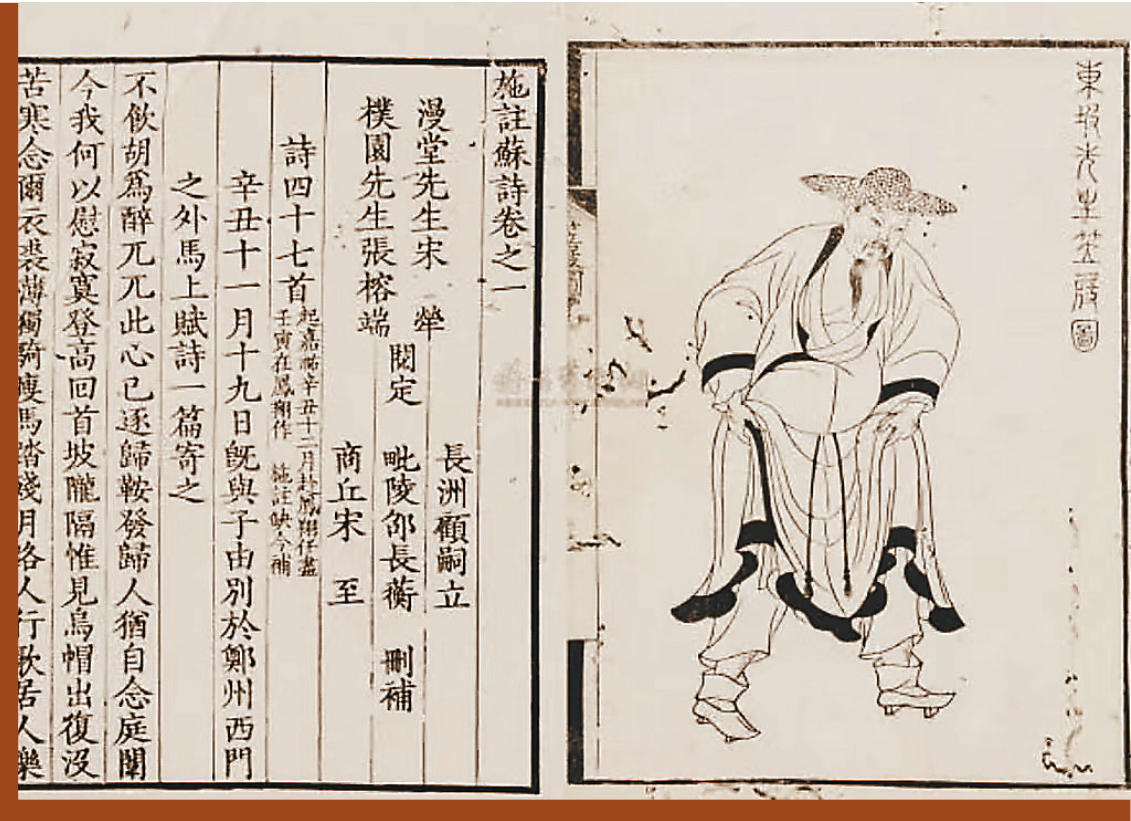 東坡先生笠屐圖
施註蘇詩卷之一
漫堂先生宋　犖　長洲顧嗣立
樸園先生張榕端　閱定　毗陵邵長蘅　刪補
商丘宋　至
詩四十七首
起嘉祐辛丑十二月赴鳳翔任盡
壬寅在鳳翔作　施註缺今補
辛丑十一月十九日旣與子由別於鄭州西門
之外馬上賦詩一篇寄之
不飲胡爲醉兀兀此心已逐歸鞍發歸人猶自念庭闈
今我何以慰寂寞登高回首坡隴隔惟見烏帽出復沒
苦寒念爾衣裘薄獨騎瘦馬踏殘月路人行歌居人樂